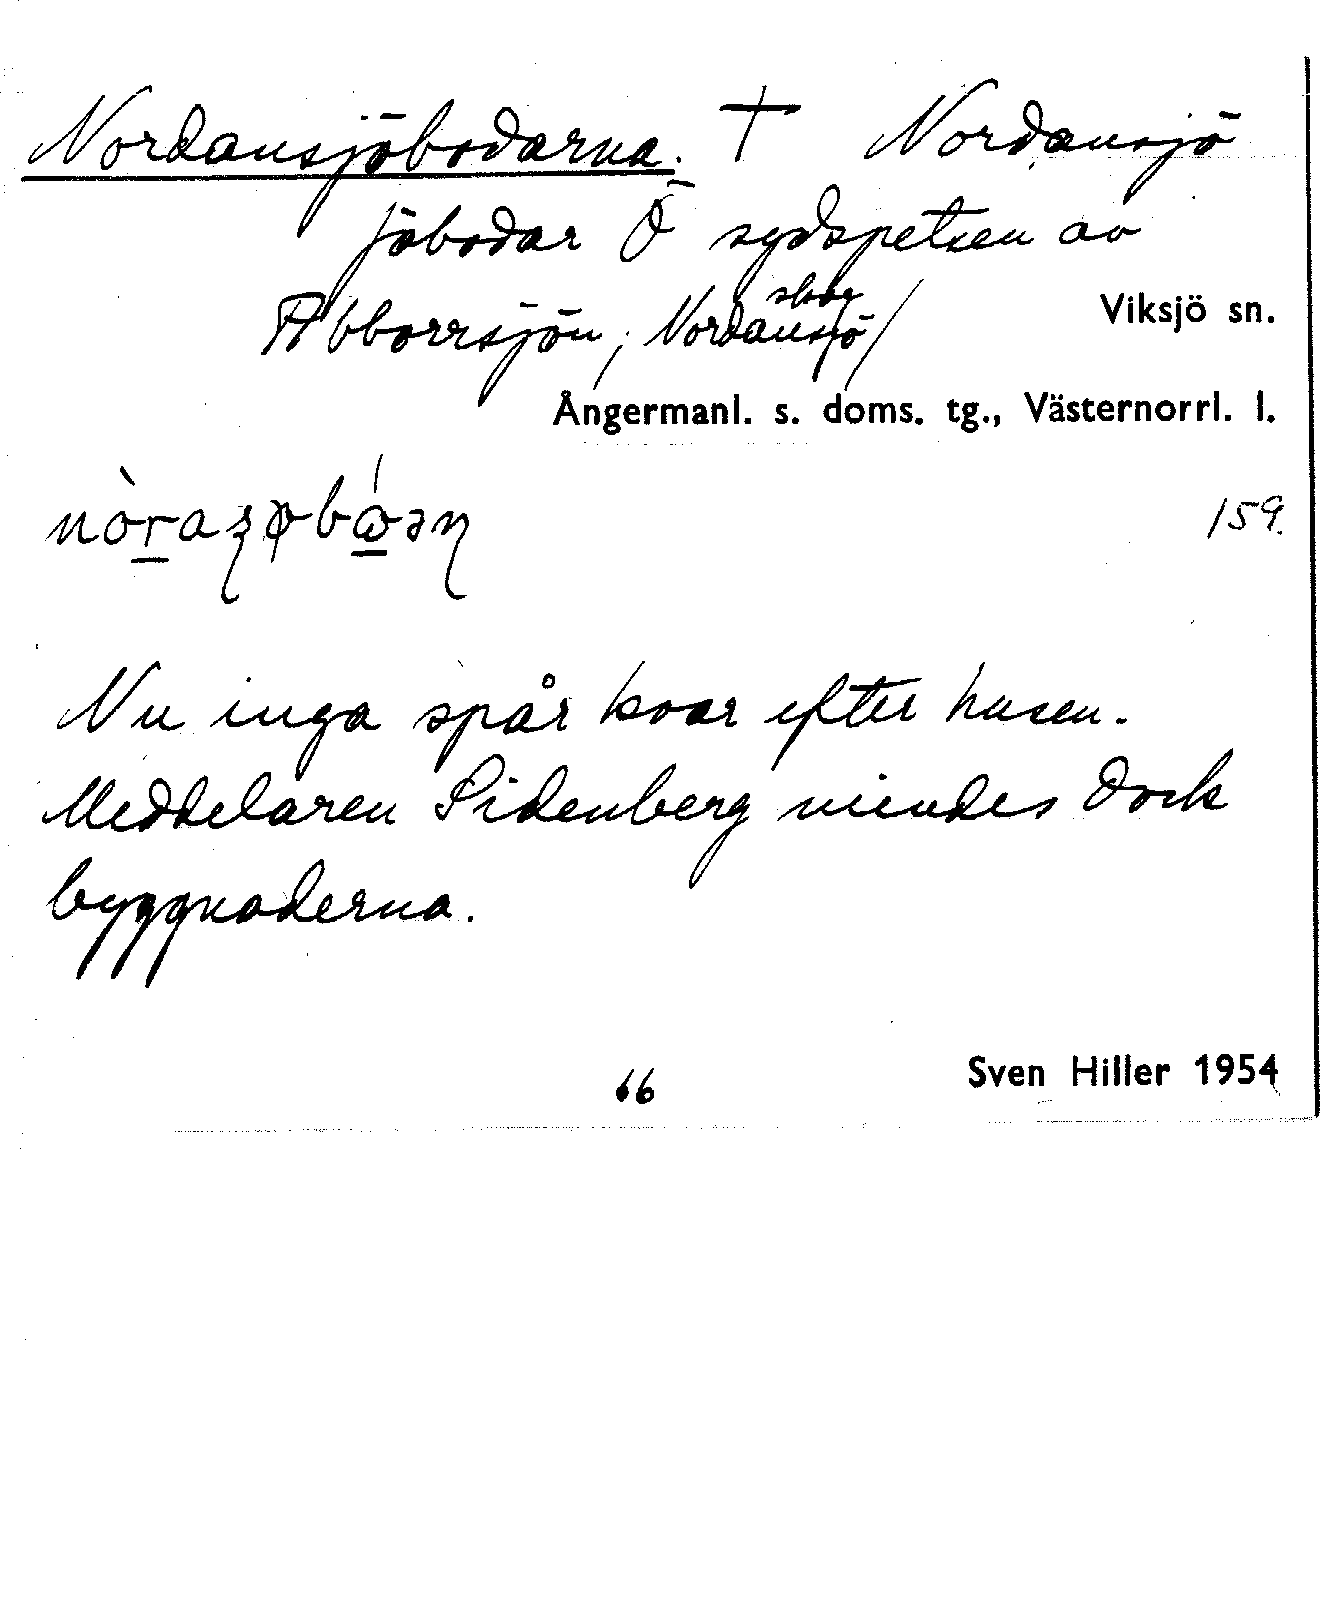 Nordansjöbodarna. † Nordansjö
fäbodar Ö sydspetsen av
Abborrsjön, Nordansjö skog
Viksjö sn.
Ångermanl. s. doms. tg., Västernorrl. l.
159.
Nu inga spår kvar efter husen.
Meddelaren Sidenberg mindes dock
byggnaderna.
66
Sven Hiller 1954